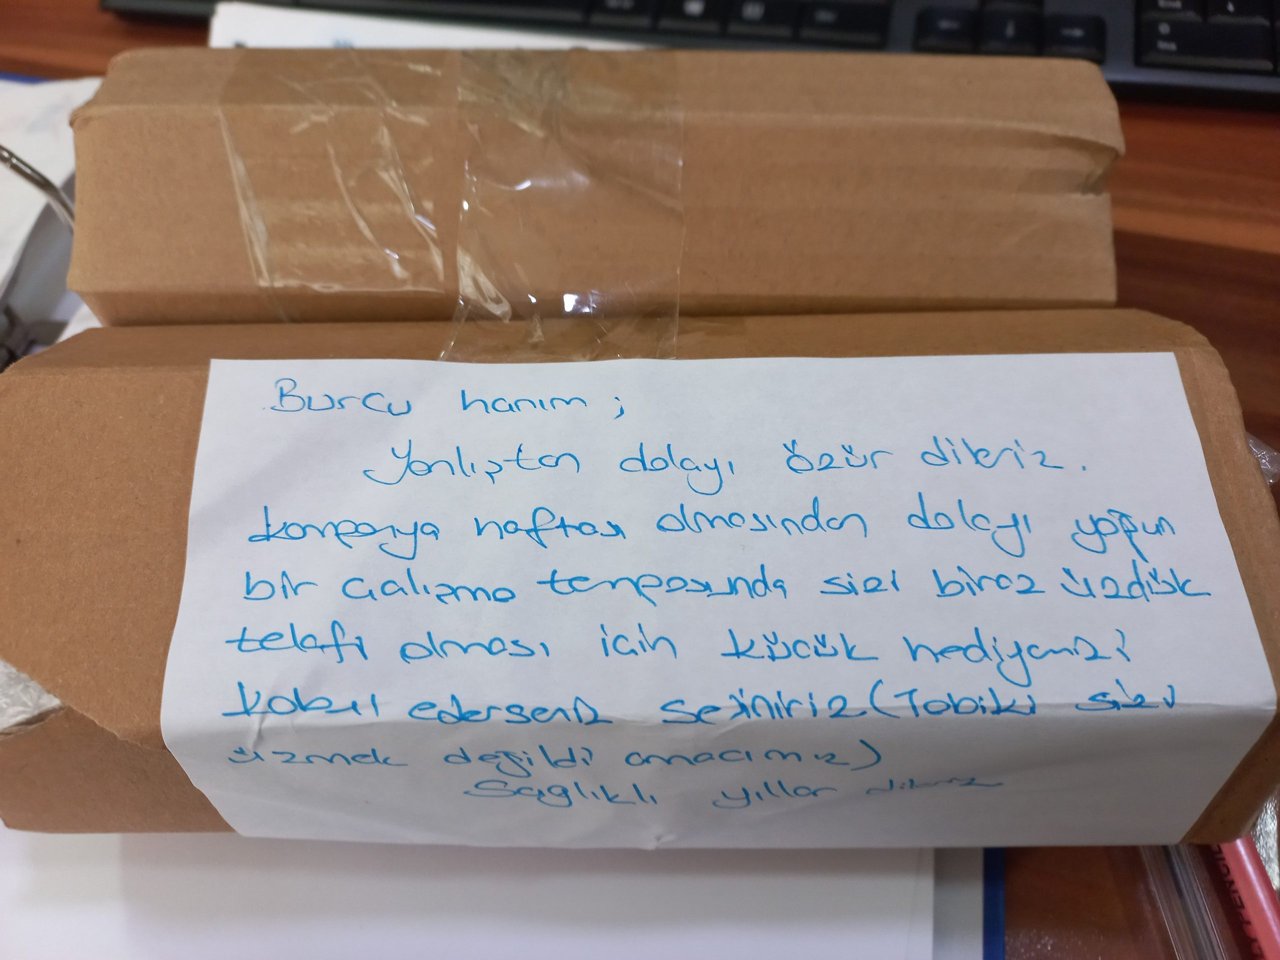 Burcu hanım;
Yanlıştan dolayı özür dileriz.
kampanya haftası olmasından dolayı yoğun
bir çalışma temposunda sizi biraz üzdük
telafi olması için küçük hediyemizi
kabul ederseniz seviniriz (Tabiki sizi
üzmek değildi amacımız)
Sağlıklı yıllar dileriz